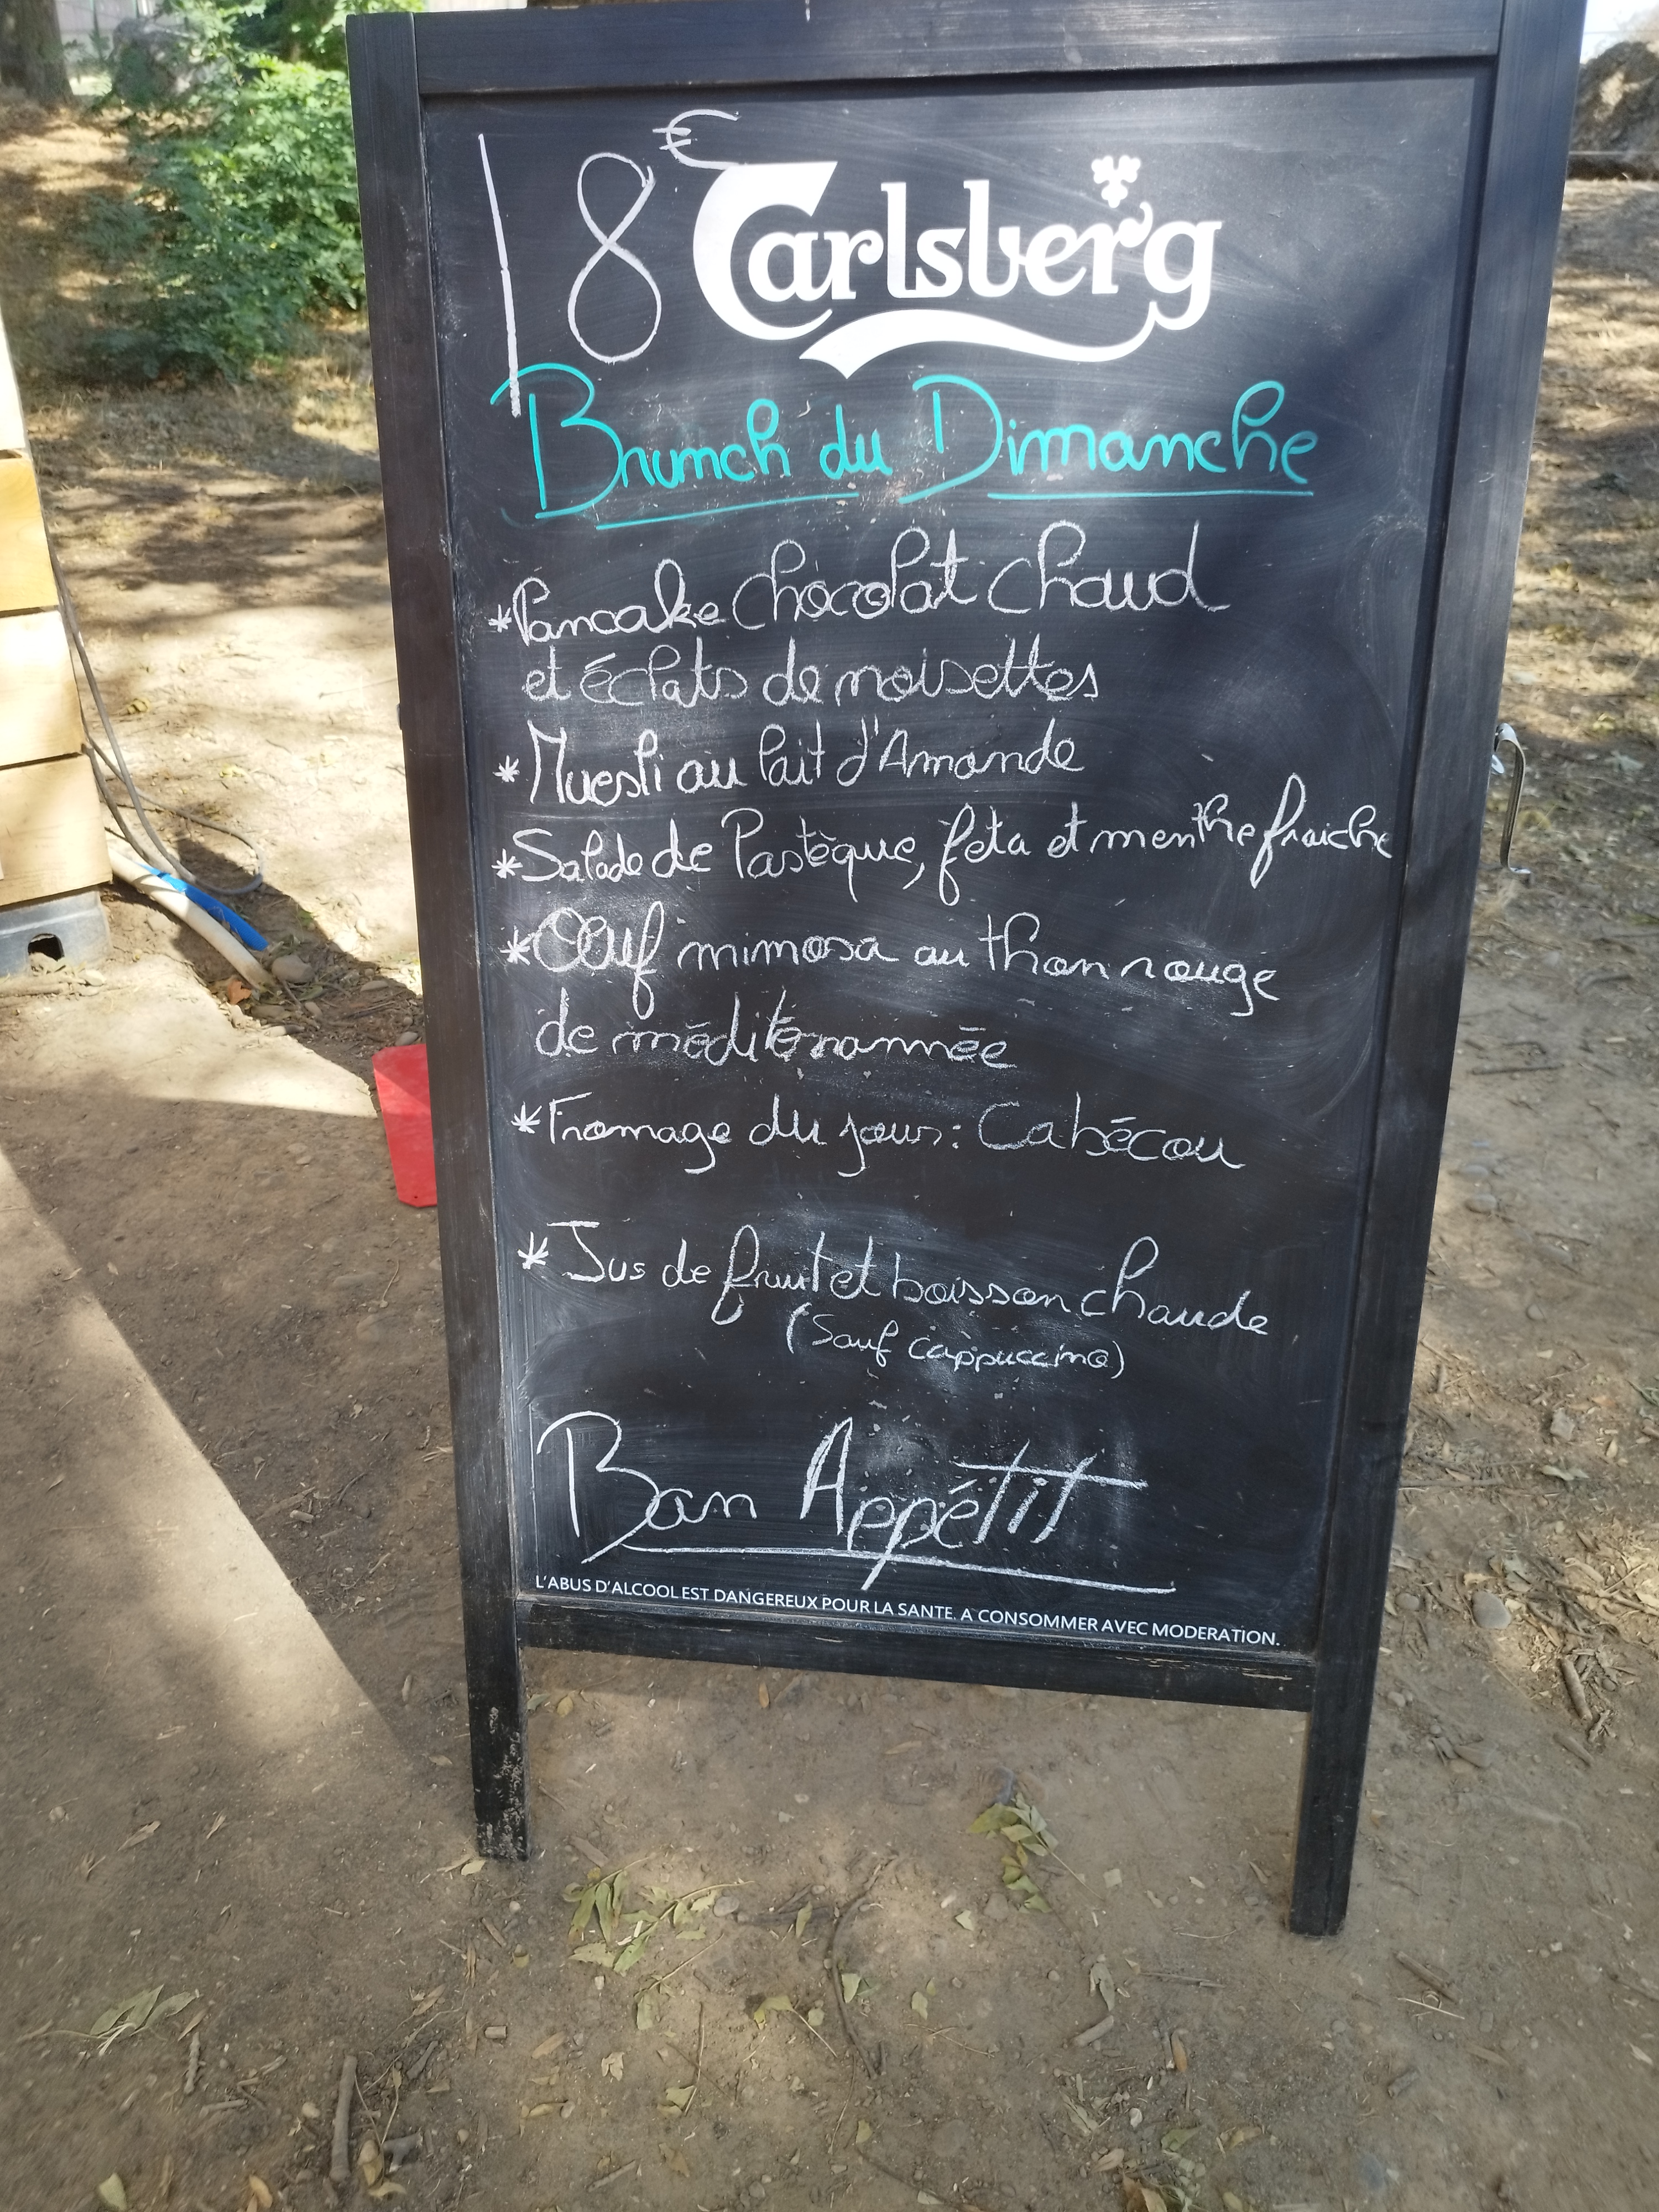 18€
Carlsberg
Brunch du Dimanche
*Pancake chocolat chaud
et éclats de noisettes
*Muesli au lait d'Amande
*Salade de Pastèque, feta et menthe fraiche
*Oeuf mimosa au thon rouge
de méditérannée
*Fromage du jour: Cabécou
*Jus de fruit et boisson chaude
(Sauf cappuccino)
Bon Appétit
L'ABUS D'ALCOOL EST DANGEREUX POUR LA SANTE. A CONSOMMER AVEC MODERATION.